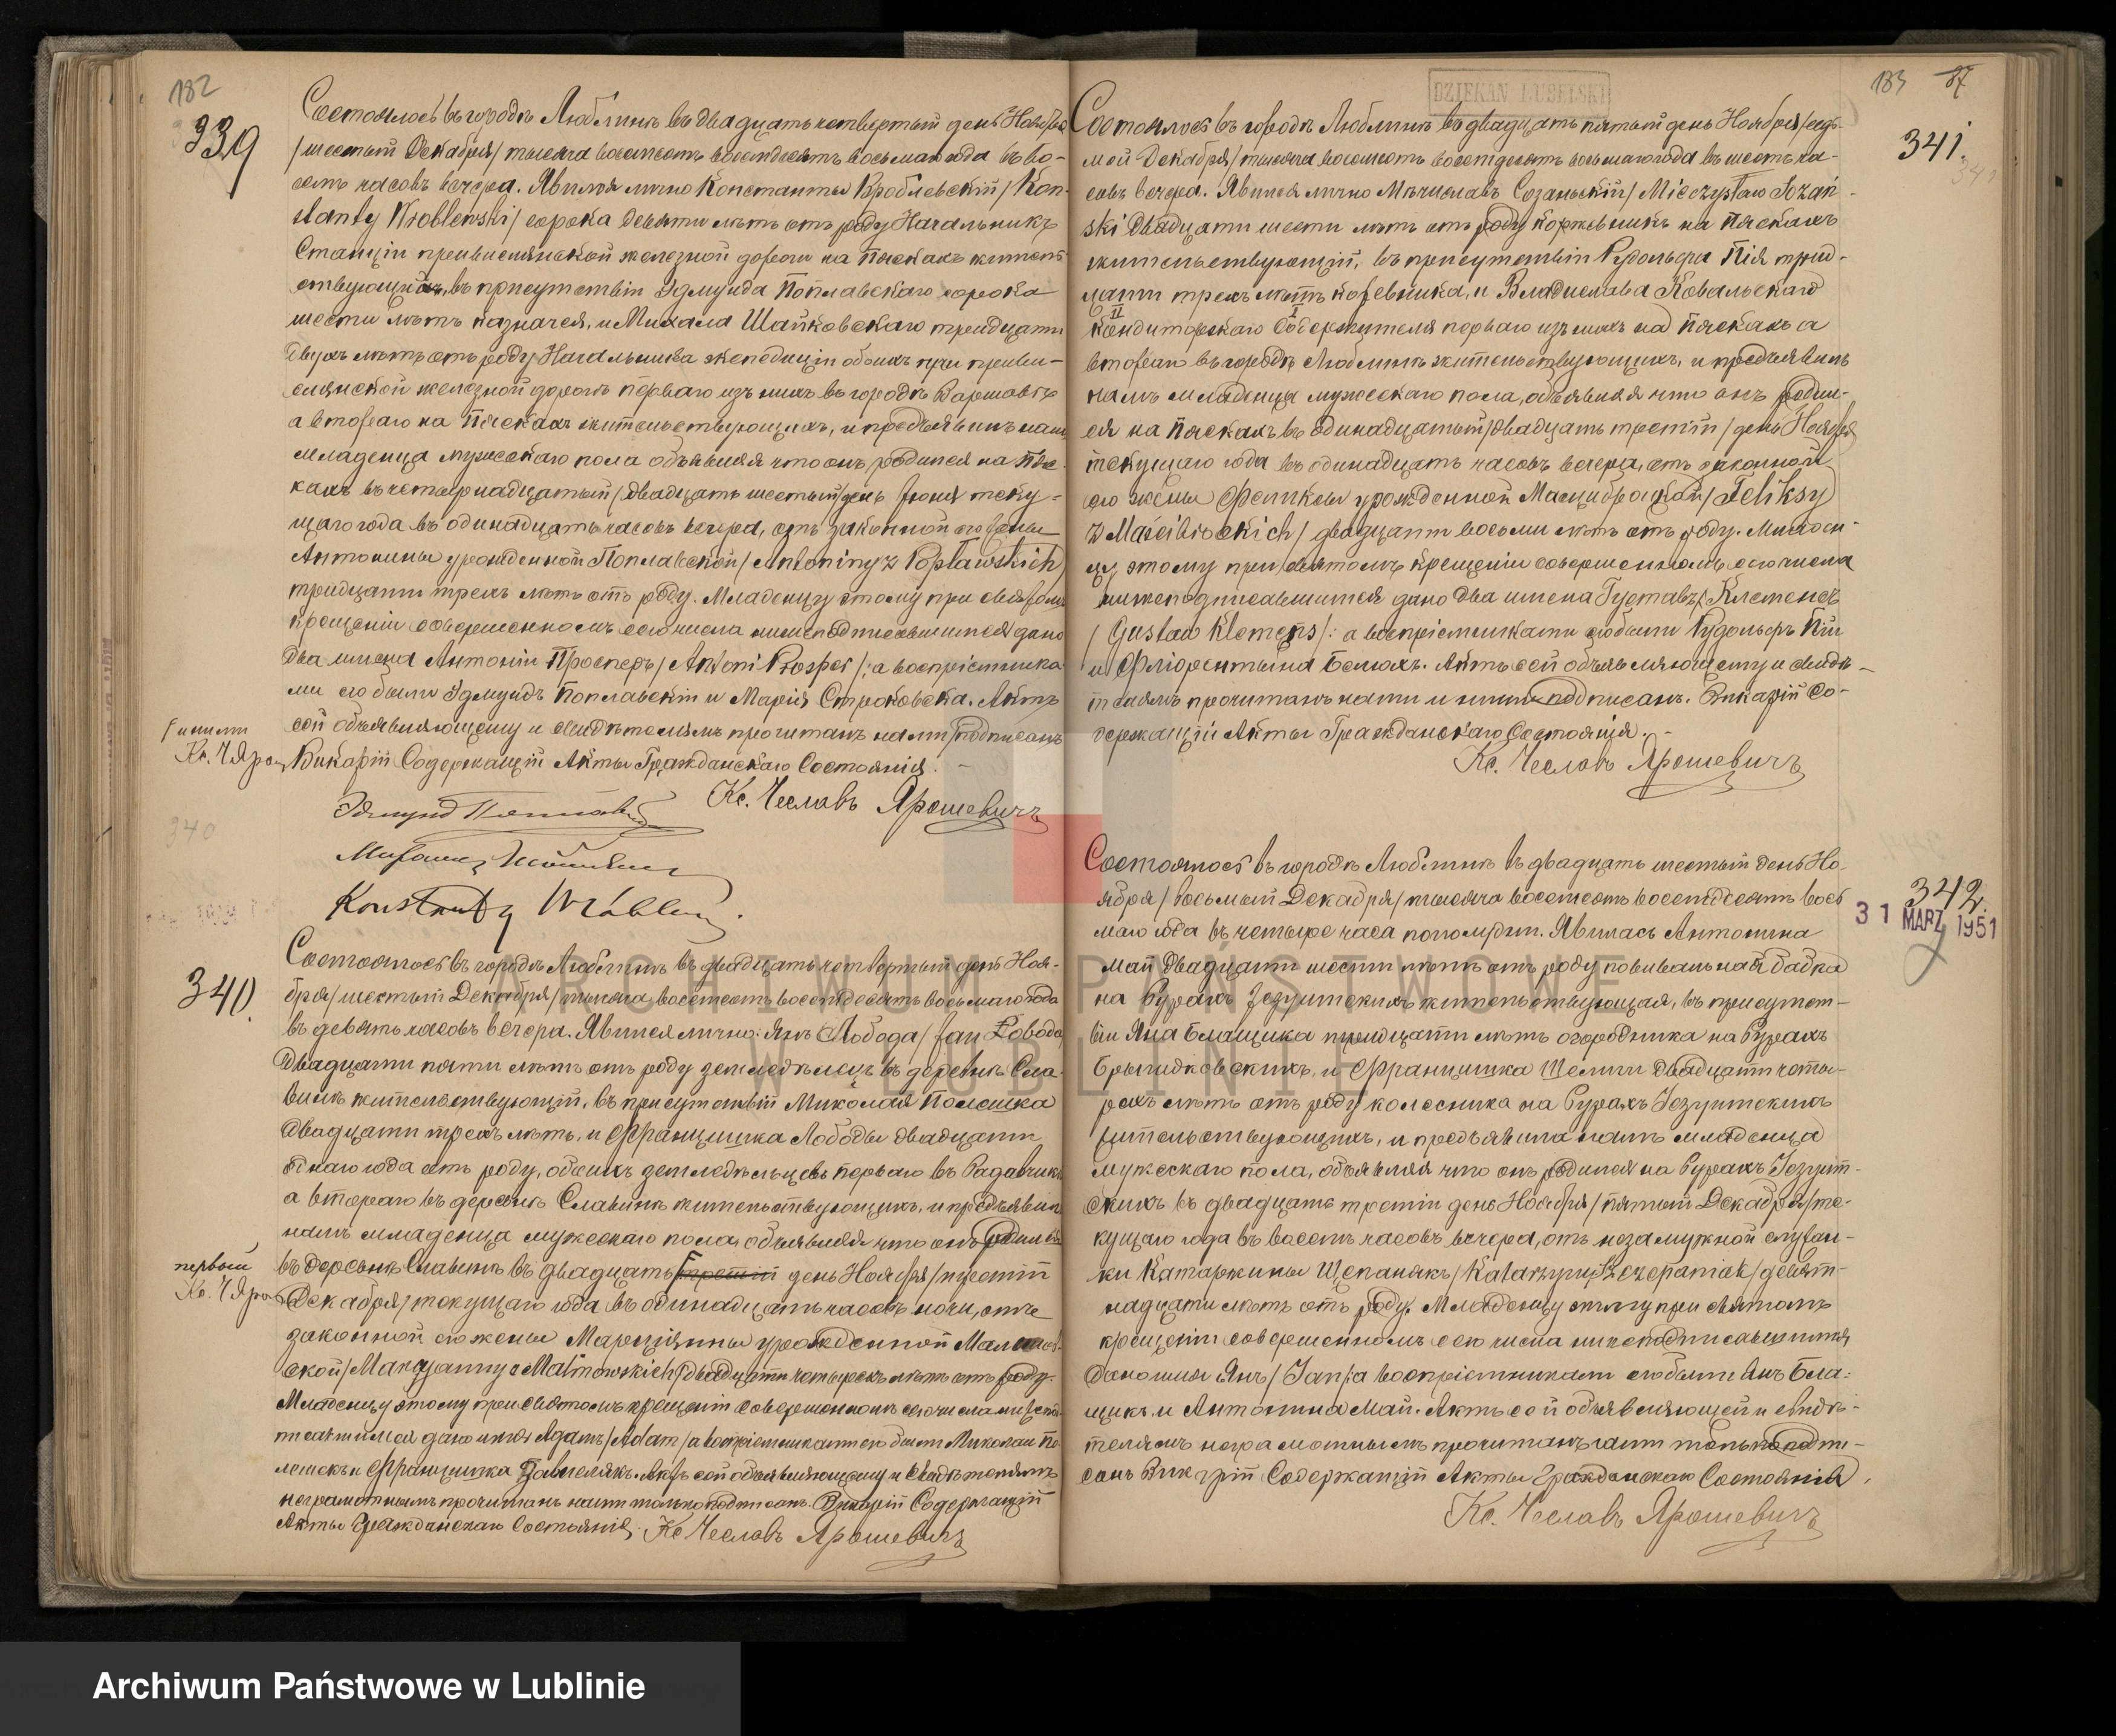 182
339
Состоялось въ городѣ Люблинѣ въ двадцать четвертый день Ноября
/шестый Декабря/ тысяча восемьсотъ восемьдесятъ восьмаго года въ во-
семь часовъ вечера. Явился лично Константы Врублевскій /Kon-
stanty Wroblewski/ сорока девяти лѣтъ отъ роду Начальникъ
Станціи привислянской железной дороги на Пяскахъ житель
ствующій, въ присутствіи Эдмунда Поплавскаго сорока
шести лѣтъ казначея, и Михала Шайковскаго тридцати
двухъ лѣтъ отъ роду Начальника экспедиціи обоихъ при приви-
слянской железной дорогѣ перваго изъ нихъ въ городѣ Варшавѣ
а втораго на Пяскахъ жительствующихъ, и предъявилъ намъ
младенца мужескаго пола объявляя что онъ родился на Пяс-
кахъ въ четырнадцатый /двадцать шестый/ день Іюня теку-
щаго года въ одинадцать часовъ вечера, отъ законной его жены
Антонины урожденной Поплавской /Antoniny z Popławskich/
тридцати трехъ лѣтъ отъ роду. Младенцу этому при святомъ
крещеніи совершенномъ сего числа нижеподписавшимся дано
два имена Антоній Просперъ /Antoni Prosper/; а воспріемника-
ми его были Эдмундъ Поплавскій и Марія Строковска. Актъ
сей объявляющему и свидѣтелямъ прочитанъ нами / подписанъ
/ и ними
Кс. Ч Ярош
Викарій Содержащій Акты Гражданскаго Состоянія.
Кс. Чеславъ Ярошевичъ
Эдмундъ Поплавскій
340
340.
Состоялось въ городѣ Люблинѣ въ двадцать четвертый день Ноя-
бря /шестый Декабря/ тысяча восемьсотъ восемьдесятъ восьмаго года
въ девять часовъ вечера. Явился лично: Янъ Лобода /Jan Łoboda/
двадцати пяти лѣтъ отъ роду земледѣлецъ въ деревнѣ Сла-
винѣ жительствующій, въ присутствіи Миколая Полешка
двадцати трехъ лѣтъ, и Францишка Лободы двадцати
однаго года отъ роду, обоихъ земледѣльцевъ перваго въ
а втораго въ деревнѣ Славинѣ жительствующихъ, и предъявилъ
намъ младенца мужескаго пола объявляя что онъ родился
первый
Кс. Ч Ярош
въ деревнѣ Славинѣ въ двадцать третій день Ноября /третій
Декабря/ текущаго года въ одинадцать часовъ ночи, отъ
законной его жены Марціанны урожденной Малинов-
ской /Marcyanny z Malinowskich/ двадцати четырехъ лѣтъ отъ роду.
Младенцу этому при святомъ крещеніи совершенномъ сего числа нижепод-
писавшимся дано имя Адамъ /Adam/ а воспріемниками его были Миколай По-
лешекъ и Францишка Гавчелякъ. Актъ сей объявляющему и свидѣтелямъ
неграмотнымъ прочитанъ нами только подписанъ. Викарій Содержащій
Акты Гражданскаго Состоянія. Кс Чеславъ Ярошевичъ
DZIEKAN LUBELSKI
183 87
341.
Состоялось въ городѣ Люблинѣ въ двадцать пятый день Ноября /седь-
мой Декабря/ тысяча восемьсотъ восемьдесятъ восьмаго года въ шесть ча-
совъ вечера. Явился лично Мѣчиславъ Созаньскій /Mieczysław Sozań-
ski двадцати шести лѣтъ отъ роду на Пяскахъ
жительствующій, въ присутствіи Рудольфа Пія трид-
цати трехъ лѣтъ и Владислава Ковальскаго
кондитерскаго содержателя перваго изъ нихъ на Пяскахъ а
втораго въ городѣ Люблинѣ жительствующихъ, и предъявилъ
намъ младенца мужескаго пола, объявляя что онъ родил-
ся на Пяскахъ въ одинадцатый /двадцать третій/ день Ноября
текущаго года въ одинадцать часовъ вечера, отъ законной
его жены Феликсы урожденной Мацибродзкой /Feliksy
z Macibrockich/ двадцати восьми лѣтъ отъ роду. Младен-
цу этому при святомъ крещеніи совершенномъ сего числа
нижеподписавшимся дано два имена Густавъ, Клеменсъ
/Gustaw Klemens/: а воспріемниками его были Рудольфъ Пій
и Фліорентына Белюхъ. Актъ сей объявляющему и свидѣ-
телямъ прочитанъ нами и ними подписанъ. Викарій Со-
держащій Акты Гражданскаго Состоянія.
Кс. Чеславъ Ярошевичъ
342.
31 MARZ 1951
Состоялось въ городѣ Люблинѣ въ двадцать шестый день Но-
ября /восьмый Декабря/ тысяча восемьсотъ восемьдесятъ вось
маго года въ четыре часа пополудни. Явилась Антонина
Май двадцати шести лѣтъ отъ роду повивальная бабка
на Бурахъ Іезуитскихъ жительствующая, въ присутст-
віи Яна Блащика тридцати лѣтъ огородника на Бурахъ
Брыгидковскихъ, и Францишка Шелиги двадцати четы-
рехъ лѣтъ отъ роду колесника на Бурахъ Іезуитскихъ
жительствующихъ, и предъявила намъ младенца
мужескаго пола, объявляя что онъ родился на Бурахъ Іезуит-
скихъ въ двадцать третій день Ноября /пятый Декабря/ те-
кущаго года въ восемь часовъ вечера, отъ незамужной служан-
ки Катаржины Щепанякъ /Katarzyny Szczepaniak/ девят-
надцати лѣтъ отъ роду. Младенцу этому при святомъ
крещеніи совершенномъ сего числа нижеподписавшимся
дано имя Янъ /Jan/: а воспріемниками его были Янъ Бла-
щикъ и Антонина Май. Актъ сей объявляющей и свидѣ-
телямъ неграмотнымъ прочитанъ нами только подпи-
санъ Викарій Содержащій Акты Гражданскаго Состоянія.
Кс. Чеславъ Ярошевичъ
ARCHIWUM PAŃSTWOWE
W LUBLINIE
Archiwum Państwowe w Lublinie